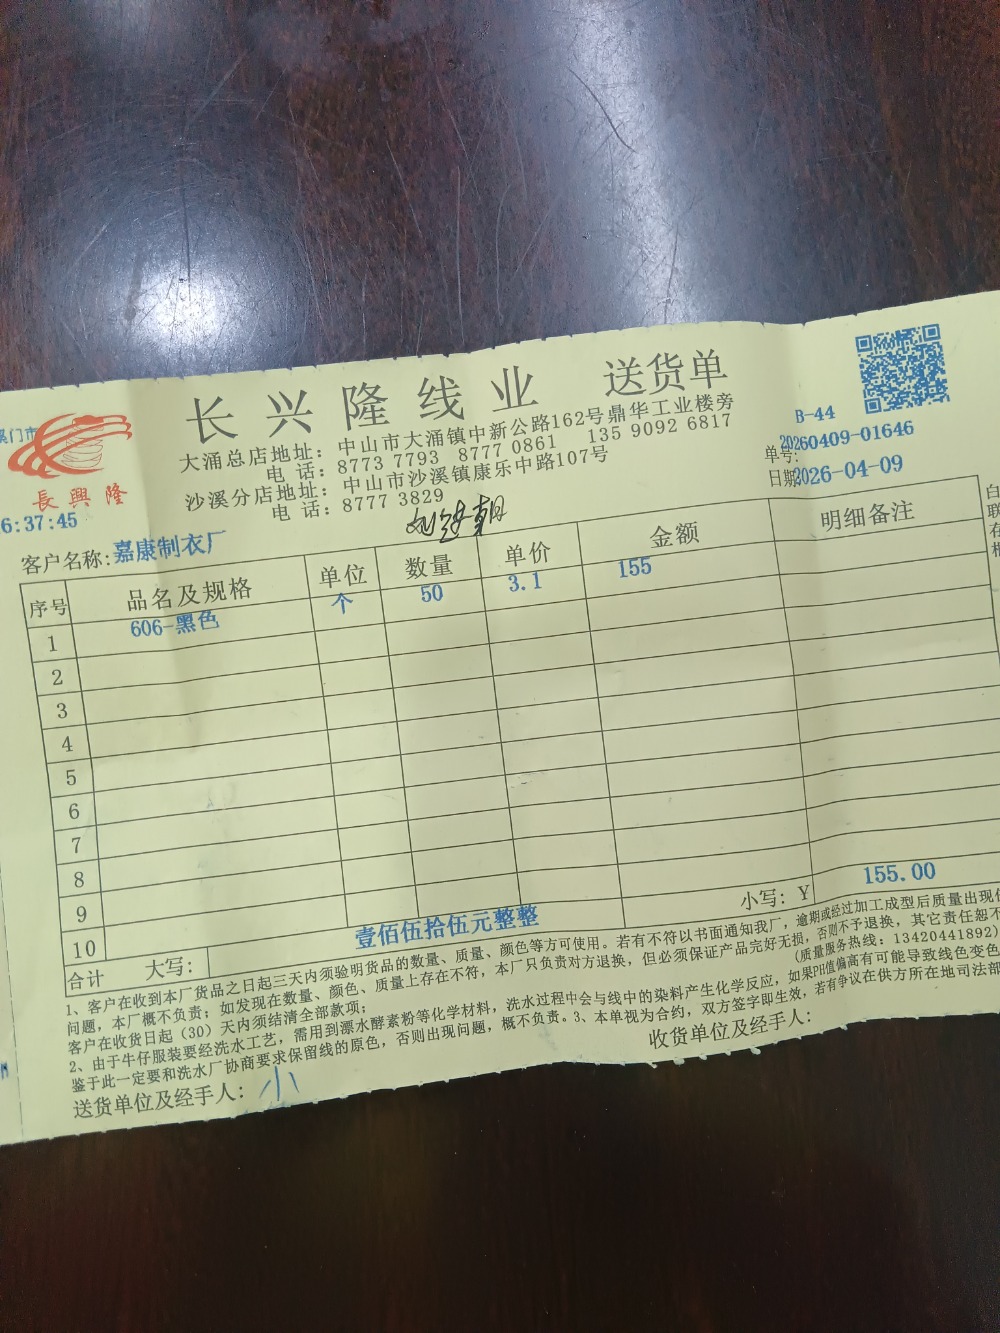 长兴隆线业 送货单
大涌总店地址：中山市大涌镇中新公路162号鼎华工业楼旁
电话：8773 7793 8777 0861 135 9092 6817
沙溪分店地址：中山市沙溪镇康乐中路107号
电话：8777 3829
B-44
单号：20260409-01646
日期：2026-04-09
長興隆
6:37:45
客户名称：嘉康制衣厂
序号 品名及规格 单位 数量 单价 金额 明细备注
1 606-黑色 个 50 3.1 155
2
3
4
5
6
7
8
9
10
合计 大写：壹佰伍拾伍元整整 小写：Y 155.00
1、客户在收到本厂货品之日起三天内须验明货品的数量、质量、颜色等方可使用。若有不符以书面通知我厂，逾期或经过加工成型后质量出现
问题，本厂概不负责；如发现在数量、颜色、质量上存在不符，本厂只负责对方退换，但必须保证产品完好无损，否则不予退换，其它责任恕不
客户在收货日起（30）天内须结清全部款项；（质量服务热线：13420441892）
2、由于牛仔服装要经洗水工艺，需用到漂水酵素粉等化学材料，洗水过程中会与线中的染料产生化学反应，如果PH值偏高有可能导致线色变色
鉴于此一定要和洗水厂协商要求保留线的原色，否则出现问题，概不负责。3、本单视为合约，双方签字即生效，若有争议在供方所在地司法部
送货单位及经手人：小 收货单位及经手人：